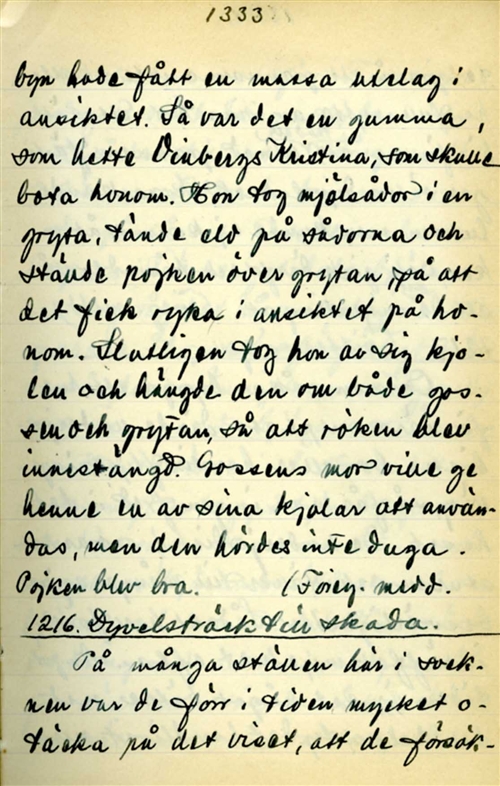 1333
byn hade fått en massa utslag i
ansiktet. Så var det en gumma,
som hette Vinbergs Kristina, som skulle
bota honom. Hon tog mjölsådor i en
gryta, tände eld på sådorna och
stände pojken över grytan, så att
det fick ryka i ansiktet på ho-
nom. Slutligen tog hon av sig kjo-
len och hängde den om både gos-
sen och grytan, så att röken blev
innestängd. Gossens mor ville ge
henne en av sina kjolar att använ-
das, men den hördes inte duga.
Pojken blev bra. (Föreg. medd.
1216. Dyvelsträck till skada.
På många ställen här i sock-
nen var de förr i tiden mycket o-
täcka på det viset, att de försök-